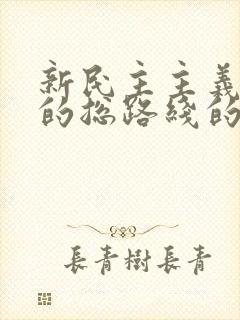 新民主主義
的总路綫的
長青樹長青